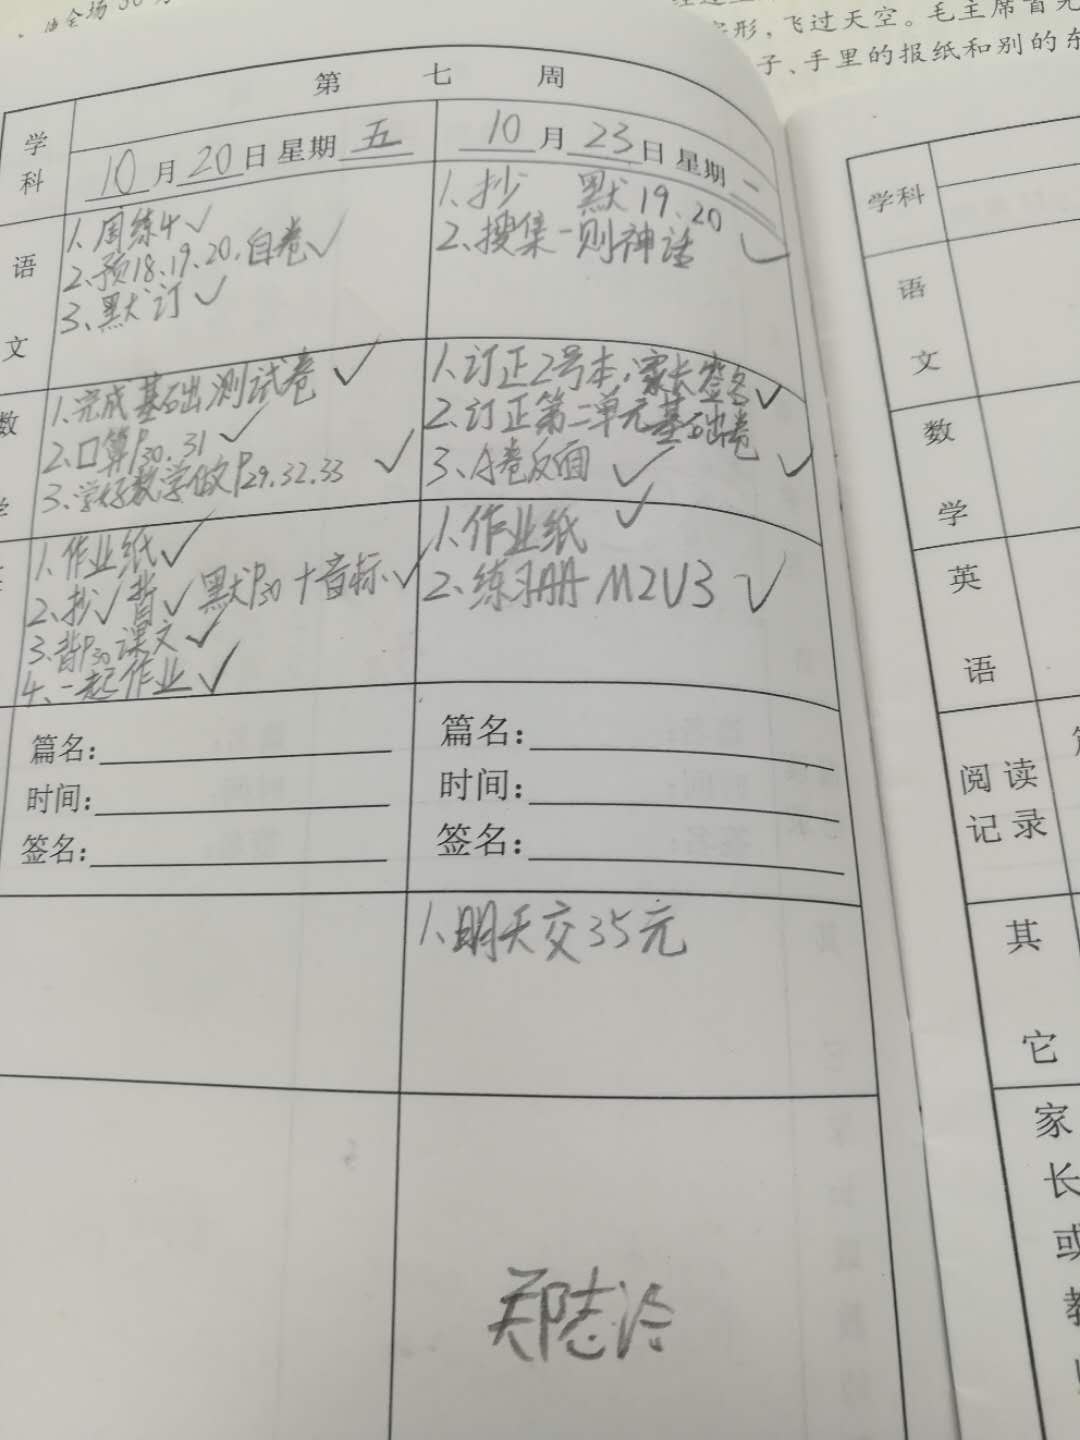 形，飞过天空。毛主席首先
子、手里的报纸和别的东
第 七 周
学科
10月20日 星期五
10月23日 星期一
语文
1、周练4✓
2、预18、19、20、自卷✓
3、默订✓
1、抄 默19、20
2、搜集一则神话✓
数学
1、完成基础测试卷✓
2、口算P30、31✓
3、学好数学做P29、32、33✓
1、订正2号本，家长签名✓
2、订正第二单元基础卷✓
3、A卷反面✓
1、作业纸✓
2、抄✓背✓默P30+音标✓
3、背P30课文✓
4、一起作业✓
1、作业纸✓
2、练习册M2U3✓
篇名：
时间：
签名：
篇名：
时间：
签名：
1、明天交35元
学科
语文
数学
英语
阅读
记录
其它
家
长
或